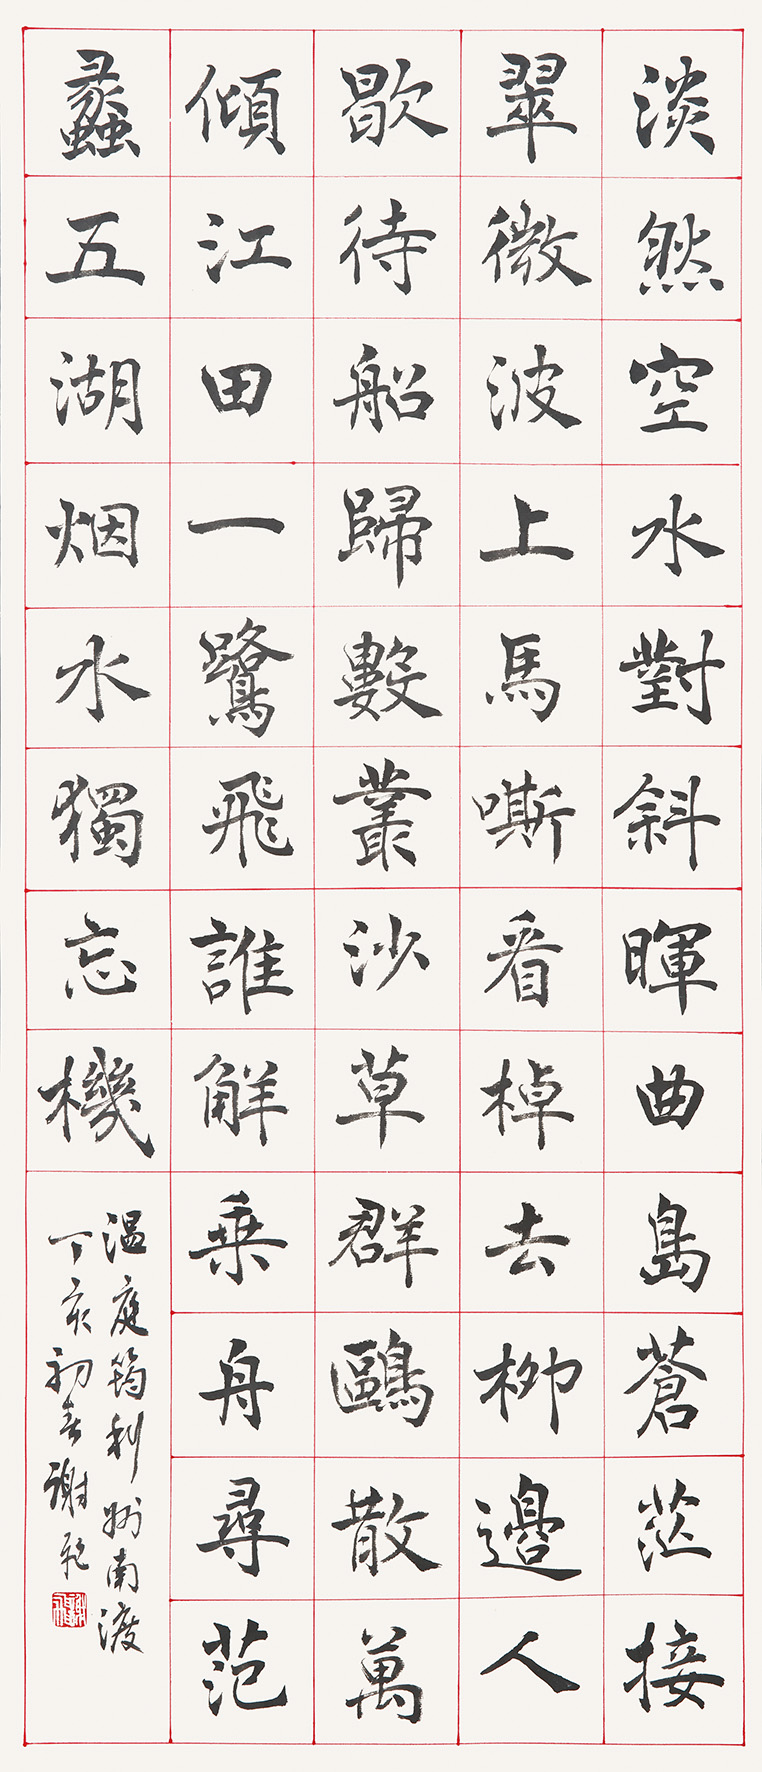 淡然空水對斜暉曲島蒼茫接
翠微波上馬嘶看棹去柳邊人
歇待船歸數叢沙草群鷗散萬
傾江田一鷺飛誰解乗舟尋范
蠡五湖烟水獨忘機
温庭筠利州南渡
丁亥初春謝